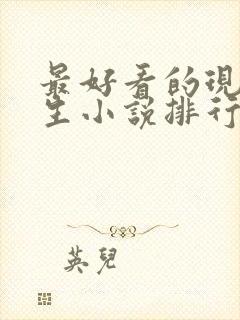 最好看的現
生小說排行
英兒